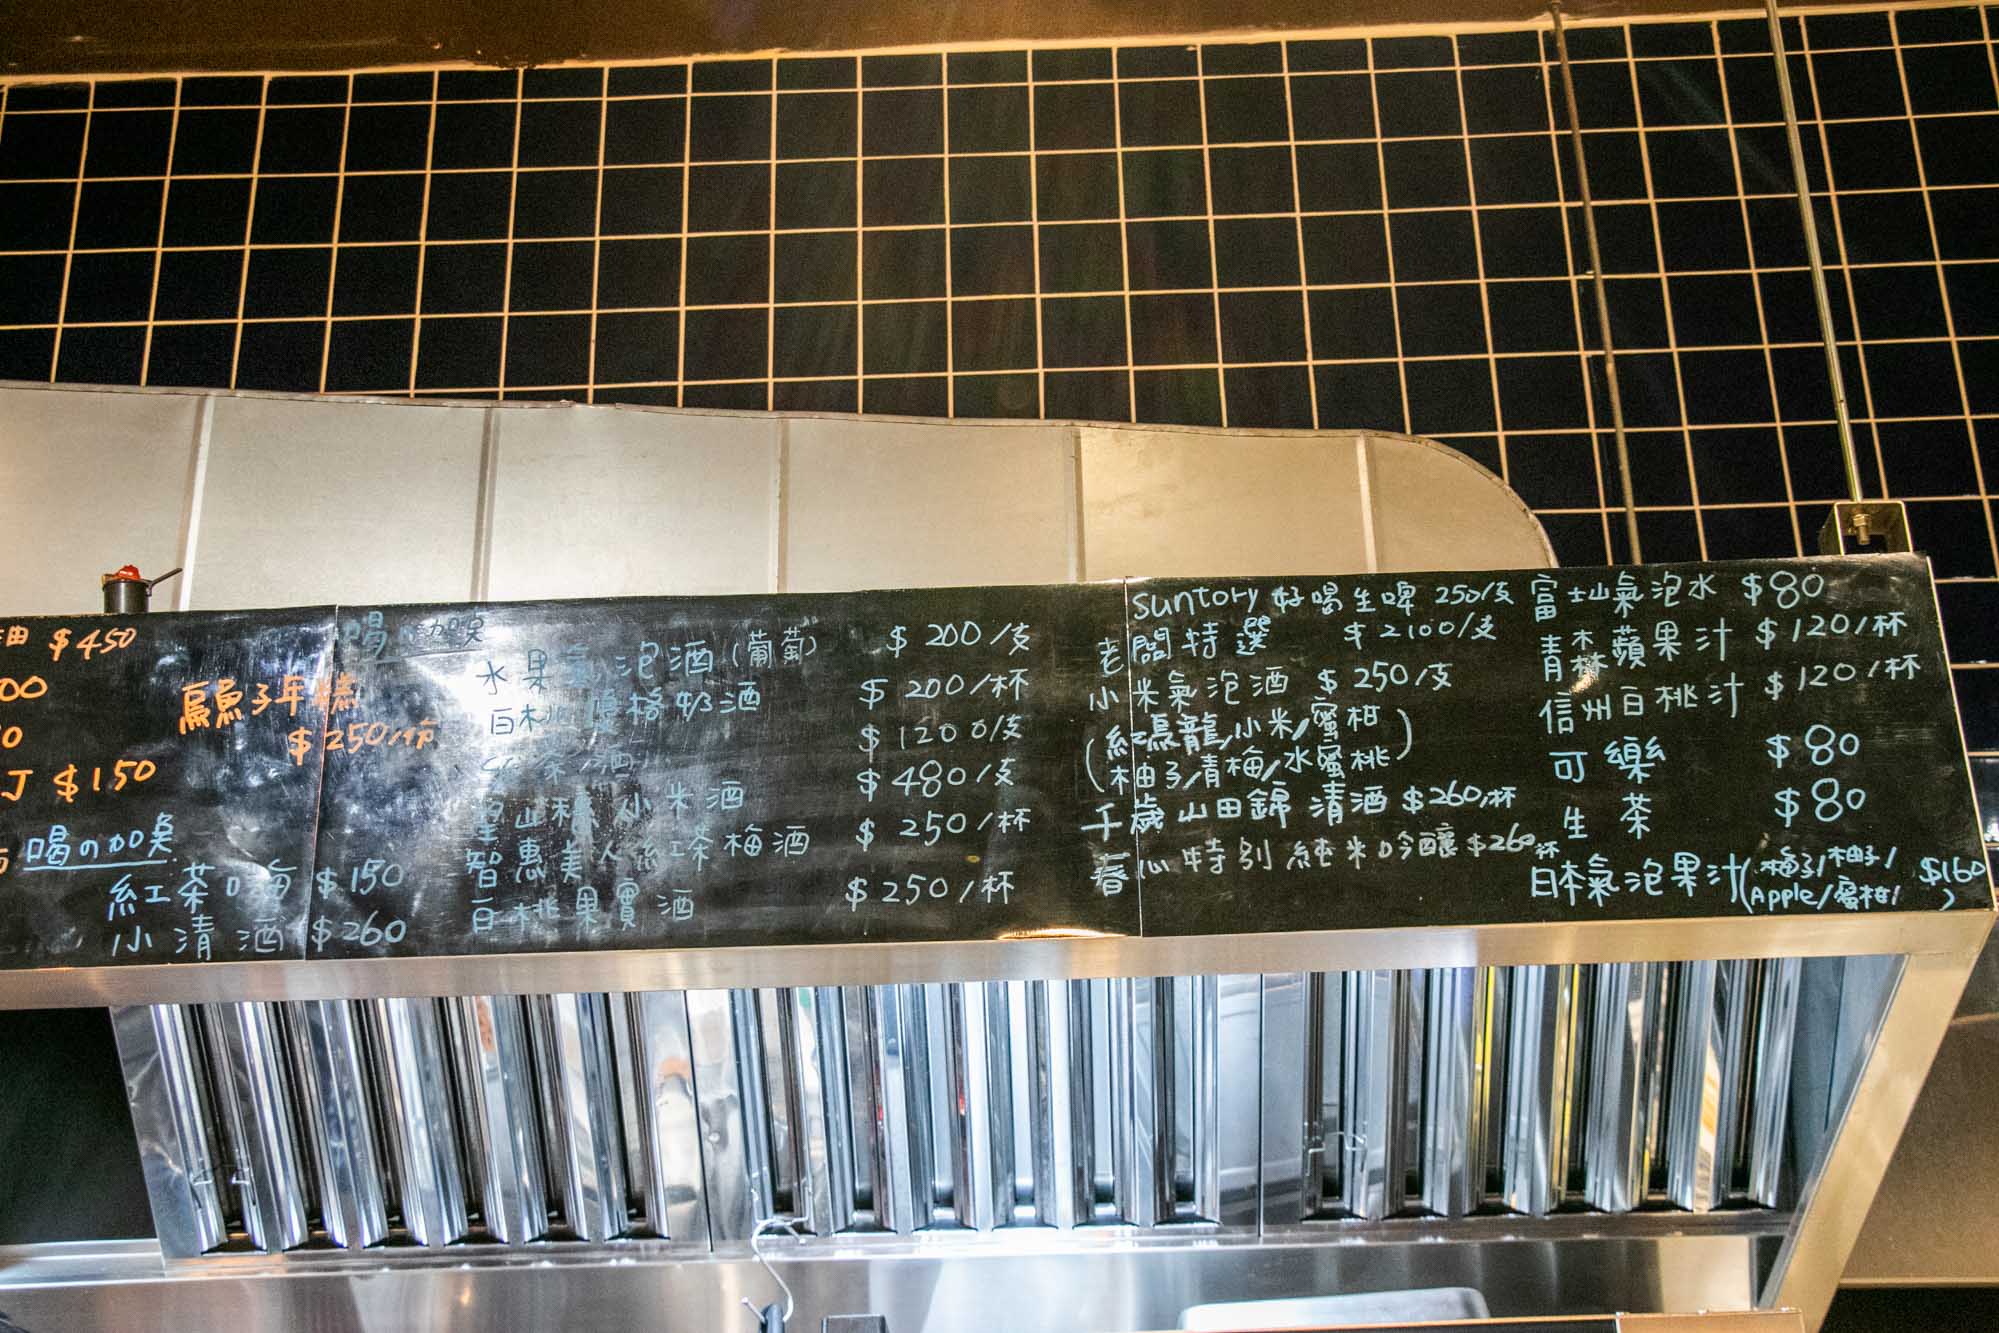 油 $450
00
0
丁 $150
烏魚子年糕
$250/份
喝の加桌
紅茶口梅 $150
小清酒 $260
喝の加桌
水果氣泡酒(葡萄) $200/支
白桃優格奶酒 $200/杯
紅茶酒 $1200/支
山穗小米酒 $480/支
智惠美人紅茶梅酒 $250/杯
白桃果實酒 $250/杯
suntory 好喝生啤 250/支
老闆特選 $2100/支
小米氣泡酒 $250/支
(紅烏龍/小米/蜜柑
柚子/青梅/水蜜桃)
千歲山田錦清酒 $260/杯
春心特別純米吟釀 $260/杯
富士山氣泡水 $80
青森蘋果汁 $120/杯
信州白桃汁 $120/杯
可樂 $80
生茶 $80
日本氣泡果汁(梅子/柚子/
Apple/蜜柑/) $160